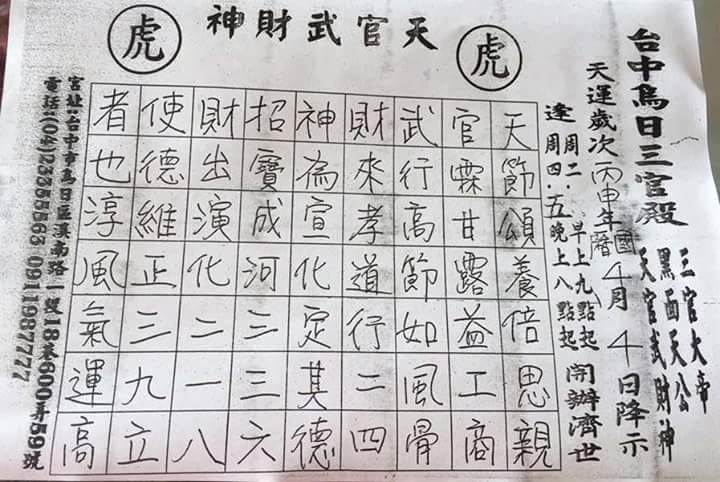 虎
天官武財神
虎
台中烏日三官殿
三官大帝
黑面天公
天官武財神
天運歲次丙申年國曆4月4日降示
逢周二．早上九點起
周四．五晚上八點起
開辦濟世
天節頌養倍思親
官霖甘露益工商
武行高節如風骨
財來孝道行二四
神為宣化定其德
招寶成河三三六
財出演化二一八
使德維正三九立
者也淳風氣運高
宮址:台中市烏日區溪南路一段18巷600弄59號
電話:(04)23355563 0911987777